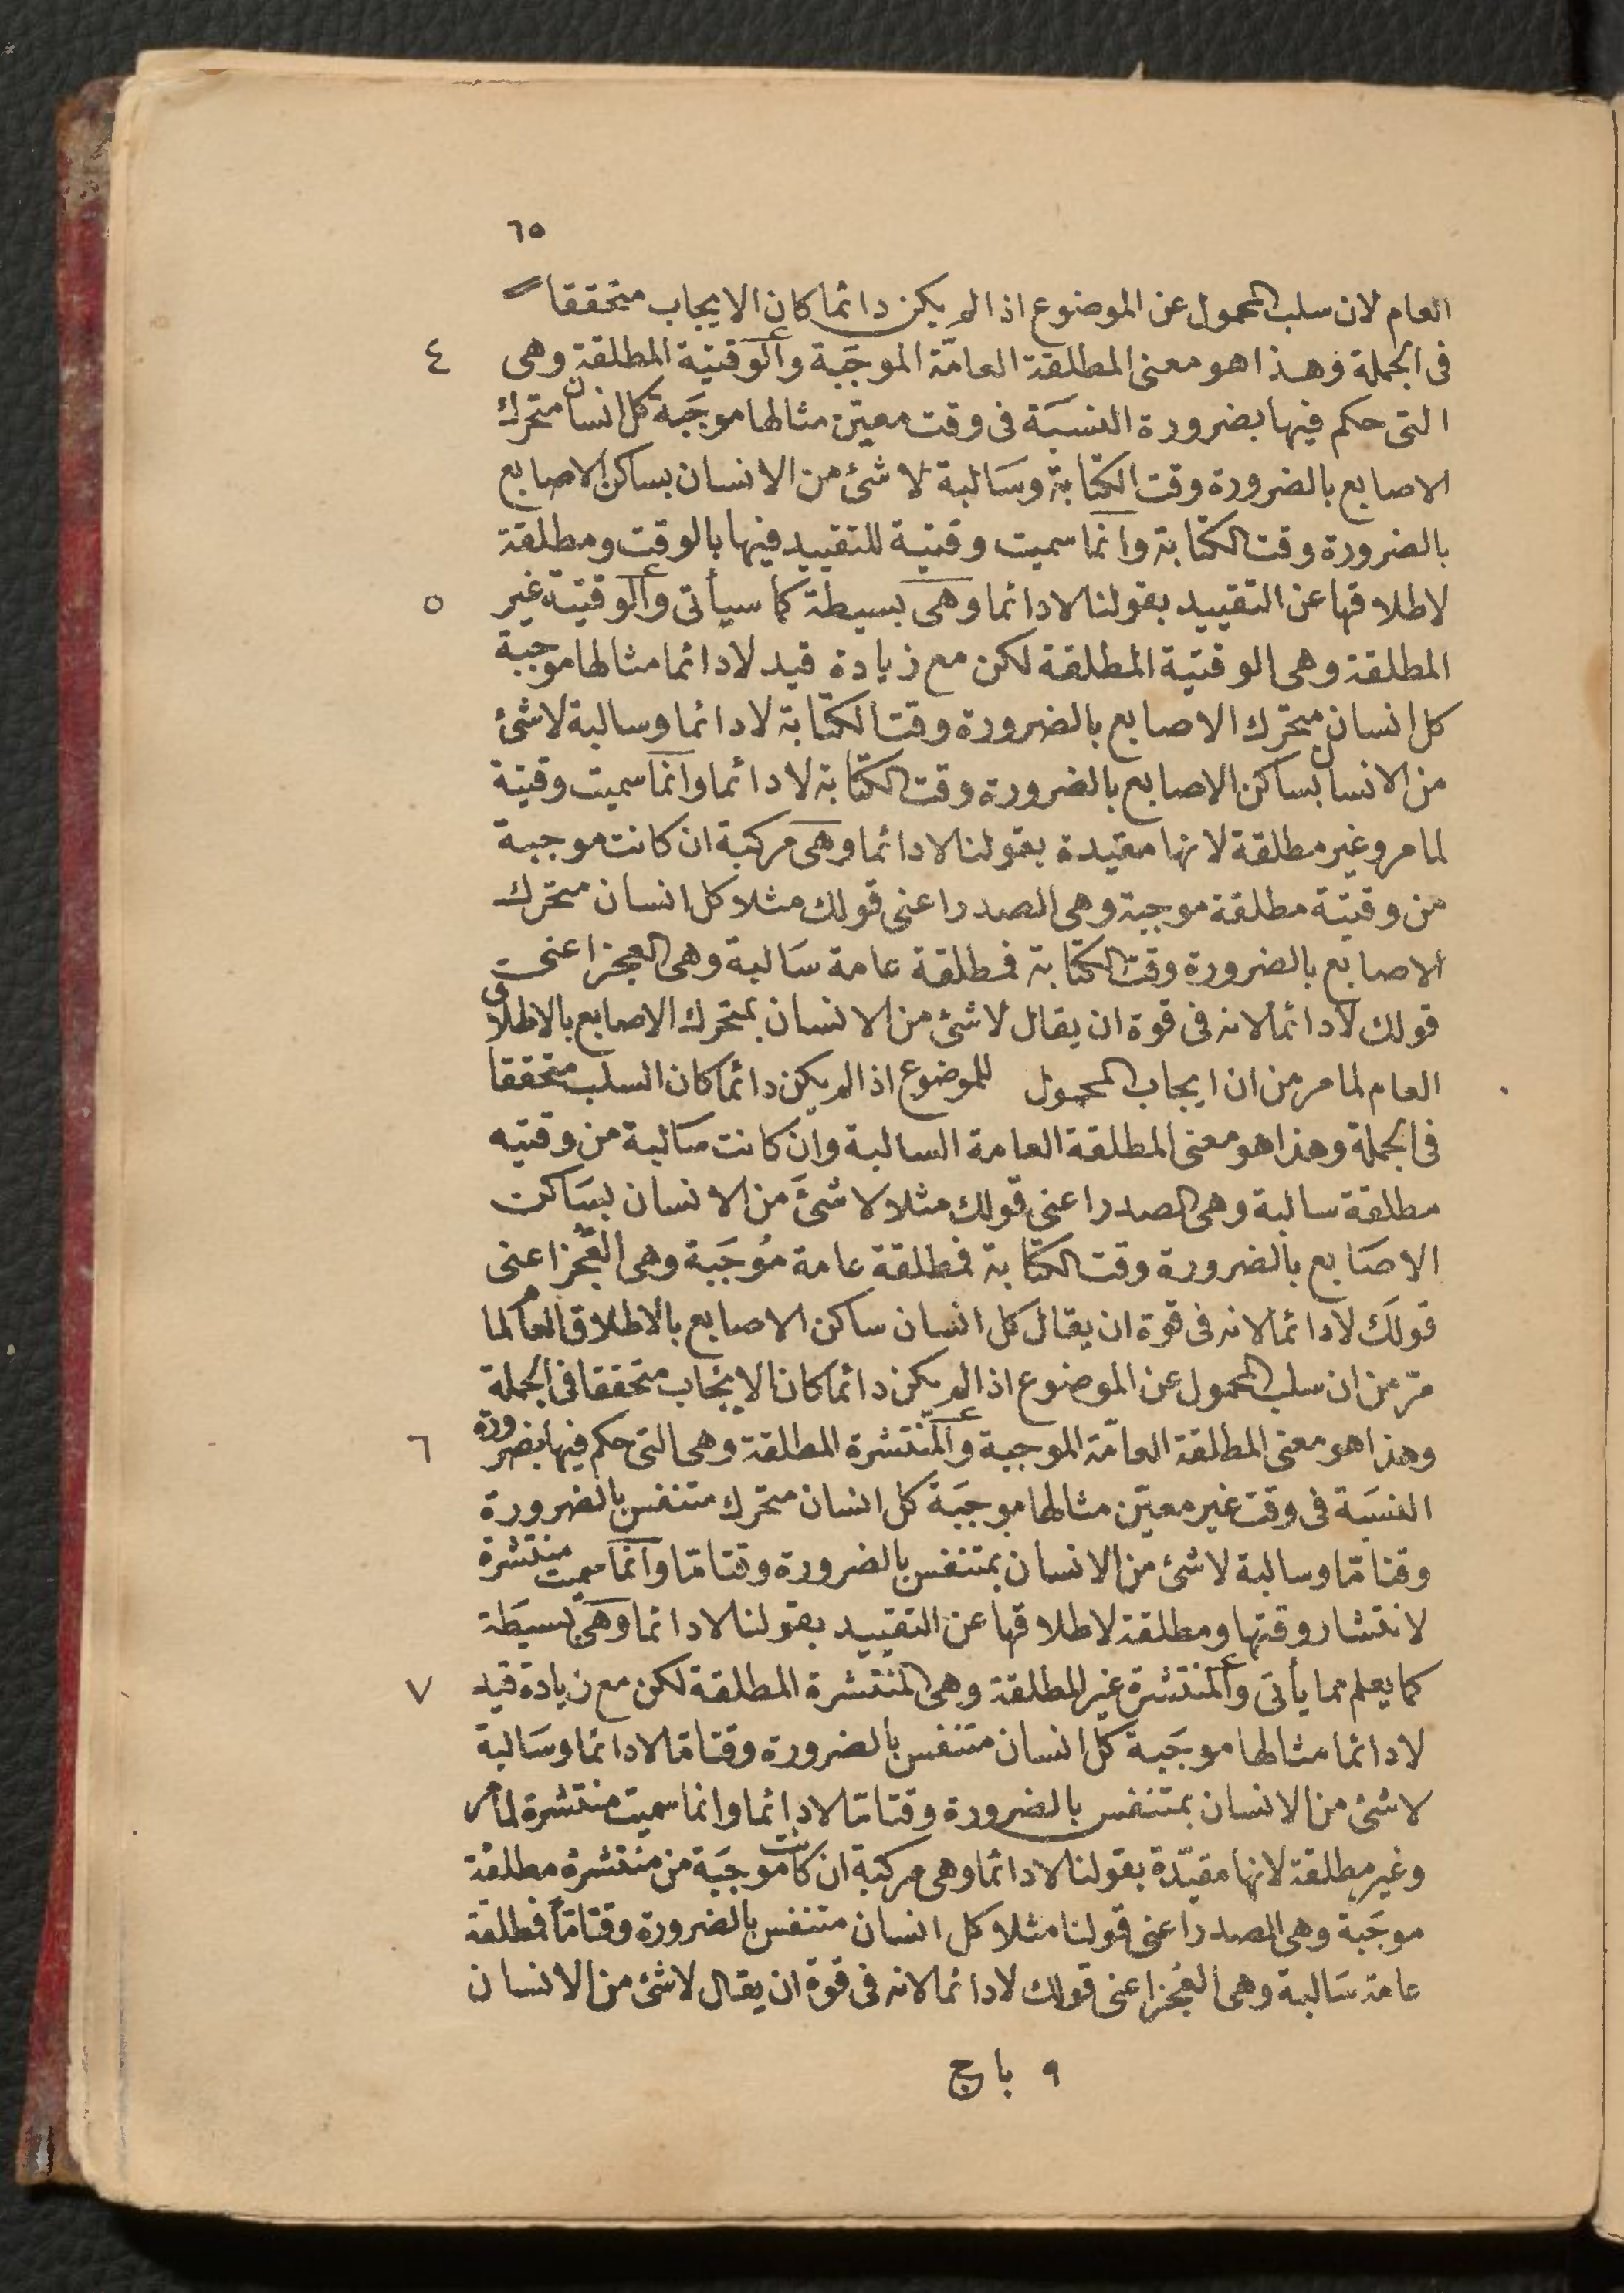 ٦٥
العام لان سلب المحمول عن الموضوع اذا لم يكن دائما كان الايجاب متحققا
فى الجملة وهذا هو معنى المطلقة العامّة الموجَبة والوقتية المطلقة وهى ٤
التى حكم فيها بضرورة النسبَة فى وقت معيّن مثالها موجَبة كل انسان متحرك
الاصابع بالضرورة وقت الكتابة وسَالبة لا شئ من الانسان بساكن الاصابع
بالضرورة وقت الكتابة وانما سميت وقتية للتقييد فيها بالوقت ومطلقة
لاطلاقها عن التقييد بقولنا لا دائما وهى بسيطة كما سيأتى والوقتية غير ٥
المطلقة وهى الوقتية المطلقة لكن مع زيادة قيد لا دائما مثالها موجبة
كل انسان متحرّك الاصابع بالضرورة وقت الكتابة لا دائما وسالبة لا شئ
من الانسان بساكن الاصابع بالضرورة وقت الكتابة لا دائما وانما سميت وقتية
لما مر وغير مطلقة لانها مقيدة بقولنا لا دائما وهى مركبة ان كانت موجبة
من وقتيّة مطلقة موجبة وهى الصدر اعنى قولك مثلا كل انسان متحرك
الاصابع بالضرورة وقت الكتابة فمطلقة عامة سَالبة وهى العجز اعنى
قولك لا دائما لانه فى قوة ان يقال لا شئ من الانسان بمتحرك الاصابع بالاطلاق
العام لما مر من ان ايجاب المحمول للموضوع اذا لم يكن دائما كان السلب متحققا
فى الجملة وهذا هو معنى المطلقة العامة السالبة وان كانت سَالبة من وقتيه
مطلقة سالبة وهى الصدر اعنى قولك مثلا لا شئَ من الانسان بسَاكن
الاصَابع بالضرورة وقت الكتابة فمطلقة عامة مُوجَبة وهى العَجُز اعنى
قولكَ لا دائما لانه فى قوة ان يقال كل انسان ساكن الاصابع بالاطلاق العام لما
مرّ من ان سلب المحمول عن الموضوع اذا لم يكن دائما كان الايجَاب متحققا فى الجملة
وهذا هو معنى المطلقة العامّة الموجبة والمنتشرة المطلقة وهى التى حكم فيها بضرورة ٦
النسبَة فى وقت غير معيّن مثالها موجَبَة كل انسان متحرك متنفس بالضرورة
وقتا مّا وسالبة لا شئ من الانسان بمتنفس بالضرورة وقتا مّا وانما سميت منتشرة
لانتشار وقتها ومطلقة لاطلاقها عن التقييد بقولنا لا دائما وهى بسيَطة
كما يعلم مما يأتى والمنتشرة غير المطلقة وهى المنتشرة المطلقة لكن مع زيادة قيد ٧
لا دائما مثالها موجَبة كل انسان متنفس بالضرورة وقتا مّا لا دائما وسَالبة
لا شئ من الانسان بمتنفس بالضرورة وقتا مّا لا دائما وانما سميت منتشرة لما مر
وغير مطلقة لانها مقيّدة بقولنا لا دائما وهى مركبة ان كانت موجَبَة من منتشرة مطلقة
موجَبة وهى الصدر اعنى قولنا مثلا كل انسان متنفس بالضرورة وقتا مّا فمطلقة
عامّة سَالبة وهى العَجُز اعنى قولك لا دائما لانه فى قوة ان يقال لا شئ من الانسان
٩ با ج